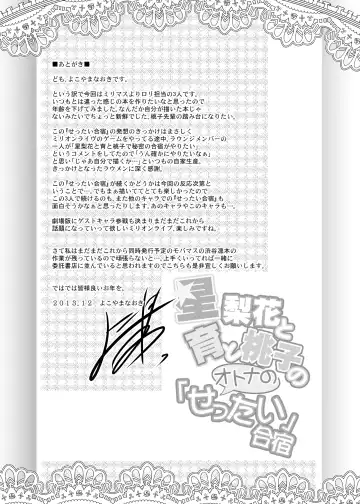 ■あとがき■
ども、よこやまなおきです。
という訳で今回はミリマスよりロリ担当の3人です。
いつもとは違った感じの本を作りたいなと思ったので
年齢を下げてみました。なんだか自分が描いた本じゃ
ないみたいでちょっと新鮮でした。桃子先輩の踏み台になりたい。
この『せったい合宿』の発想のきっかけはまさしく
ミリオンライヴのゲームをやってる途中、ラウンジメンバーの
一人が「星梨花と育と桃子で秘密の合宿がやりたい」
というコメントをしてたので「うん確かにやりたいなぁ」
と思い「じゃあ自分で描くか…」といつもの自家生産。
きっかけとなったラウメンに深く感謝。
この『せったい合宿』が続くかどうかは今回の反応次第と
いうことで…。でもまぁ描いててとても楽しかったので
この3人で続けるのも、また他のキャラでの『せったい合宿』も
面白そうかなぁと思ったりします。あのキャラやこのキャラも…。
劇場版にゲストキャラ参戦も決まりまだまだこれから
話題になっていって欲しいミリオンライヴ、楽しみですね。
さて私はまだまだこれから同時発行予定のモバマスの渋谷凛本の
作業が残っているので頑張らないと…。上手くいってれば一緒に
委託書店に並んでいると思われますのでこちらも是非宜しくお願いします。
ではでは皆様良いお年を。
2013.12 よこやまなおき
星梨花と
育と桃子の
オトナの
「せったい」
合宿